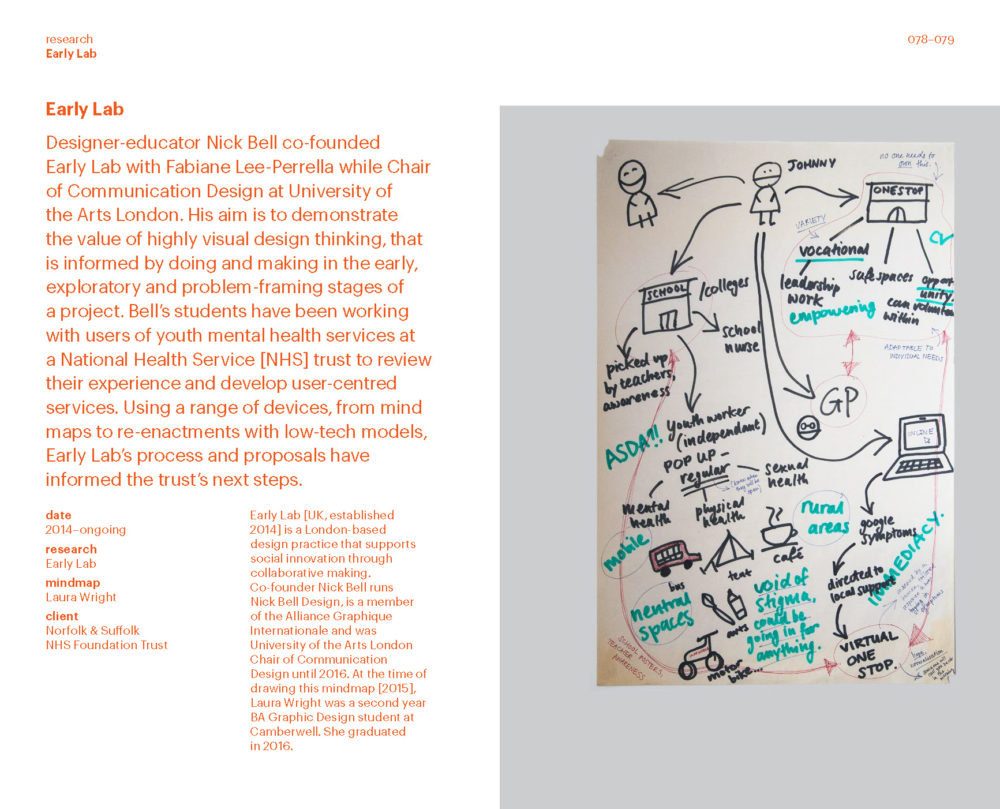 research
Early Lab
078–079
Early Lab
Designer-educator Nick Bell co-founded
Early Lab with Fabiane Lee-Perrella while Chair
of Communication Design at University of
the Arts London. His aim is to demonstrate
the value of highly visual design thinking, that
is informed by doing and making in the early,
exploratory and problem-framing stages of
a project. Bell’s students have been working
with users of youth mental health services at
a National Health Service [NHS] trust to review
their experience and develop user-centred
services. Using a range of devices, from mind
maps to re-enactments with low-tech models,
Early Lab’s process and proposals have
informed the trust’s next steps.
date
2014–ongoing
research
Early Lab
mindmap
Laura Wright
client
Norfolk & Suffolk
NHS Foundation Trust
Early Lab [UK, established
2014] is a London-based
design practice that supports
social innovation through
collaborative making.
Co-founder Nick Bell runs
Nick Bell Design, is a member
of the Alliance Graphique
Internationale and was
University of the Arts London
Chair of Communication
Design until 2016. At the time of
drawing this mindmap [2015],
Laura Wright was a second year
BA Graphic Design student at
Camberwell. She graduated
in 2016.
JOHNNY
no one needs to
own this.
ONESTOP
VARIETY
vocational
CV
leadership
work
empowering
safe spaces
opport
unity.
can volunteer
within
ADAPTABLE TO
INDIVIDUAL NEEDS
SCHOOL
/colleges
school
nurse
picked up
by teachers,
awareness
GP
ONLINE
youth worker
(independant)
ASDA?!!
POP UP –
regular
sexual
health
mental
health
physical
health
rural
areas
google
symptoms
IMMEDIACY.
mobile
bus
tent
café
directed to
local support
neutral
spaces
arts
void of
stigma,
could be
going in for
anything.
motor
bike...
SCHOOL POSTERS,
TEACHER
AWARENESS
VIRTUAL
ONE
STOP.